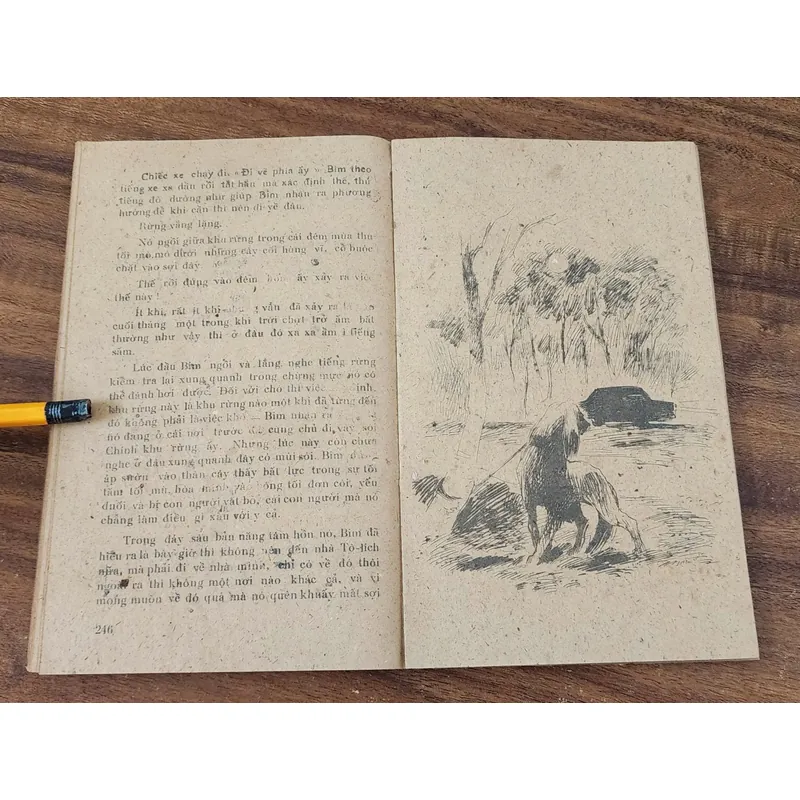 Chiếc xe chạy đi. «Đi về phía ấy». Bim theo
tiếng xe xa dần rồi tắt hẳn mà xác định thế, thứ
tiếng đó dường như giúp Bim nhận ra phương
hướng để khi cần thì nên đi về đâu.
Rừng vắng lặng.
Nó ngồi giữa khu rừng trong cái đêm mùa thu
tối mò mò dưới những cây cổi hùng vĩ, cổ buộc
chặt vào sợi dây.
Thế rồi đúng vào đêm hôm ấy xảy ra việc
thế này!
Ít khi, rất ít khi vẫn đã xảy ra là
cuối tháng một trong khi trời chợt trở ấm bất
thường như vậy thì ở đâu đó xa xa ầm ì tiếng
sấm.
Lúc đầu Bim ngồi và lắng nghe tiếng rừng
kiểm tra lại xung quanh trong chừng mực nó có
thể đánh hơi được. Đối với chó thì việc định
khu rừng này là khu rừng nào một khi đã từng đến
đó không phải là việc khó — Bim nhận ra
nó đang ở cái nơi trước đã cùng chủ đi vây sói
Chính khu rừng ấy. Nhưng lúc này còn chưa
nghe ở đâu xung quanh đây có mùi sói. Bim
áp sườn vào thân cây thấy bất lực trong sự tối
tăm tối mù, hòa mình tối đơn côi, yếu
đuối và bị con người vất bỏ, cái con người mà nó
chẳng làm điều gì xấu với y cả.
Trong đáy sâu bản năng tâm hồn nó, Bim đã
hiểu ra là bây giờ thì không nên đến nhà Tô-lích
nữa, mà phải đi về nhà mình, chỉ có về đó thôi
ngoài ra thì không một nơi nào khác cả, và vì
mong muốn về đó quá mà nó quên khuấy mất sợi
246